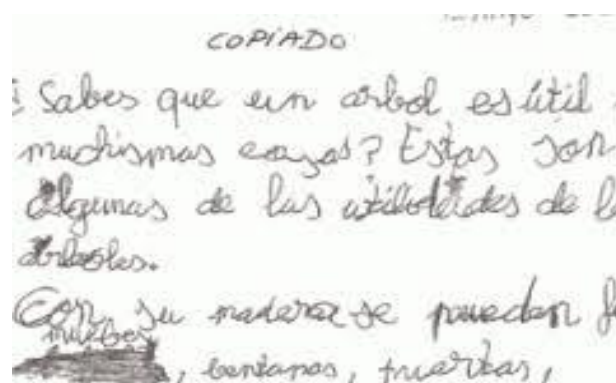 COPIADO
¿Sabes que un arbol es útil
muchismas cosas? Estas son
Algunas de las utilidades de l
arboles.
Con su madera se pueden f
muebles
, bentanas, puertas,